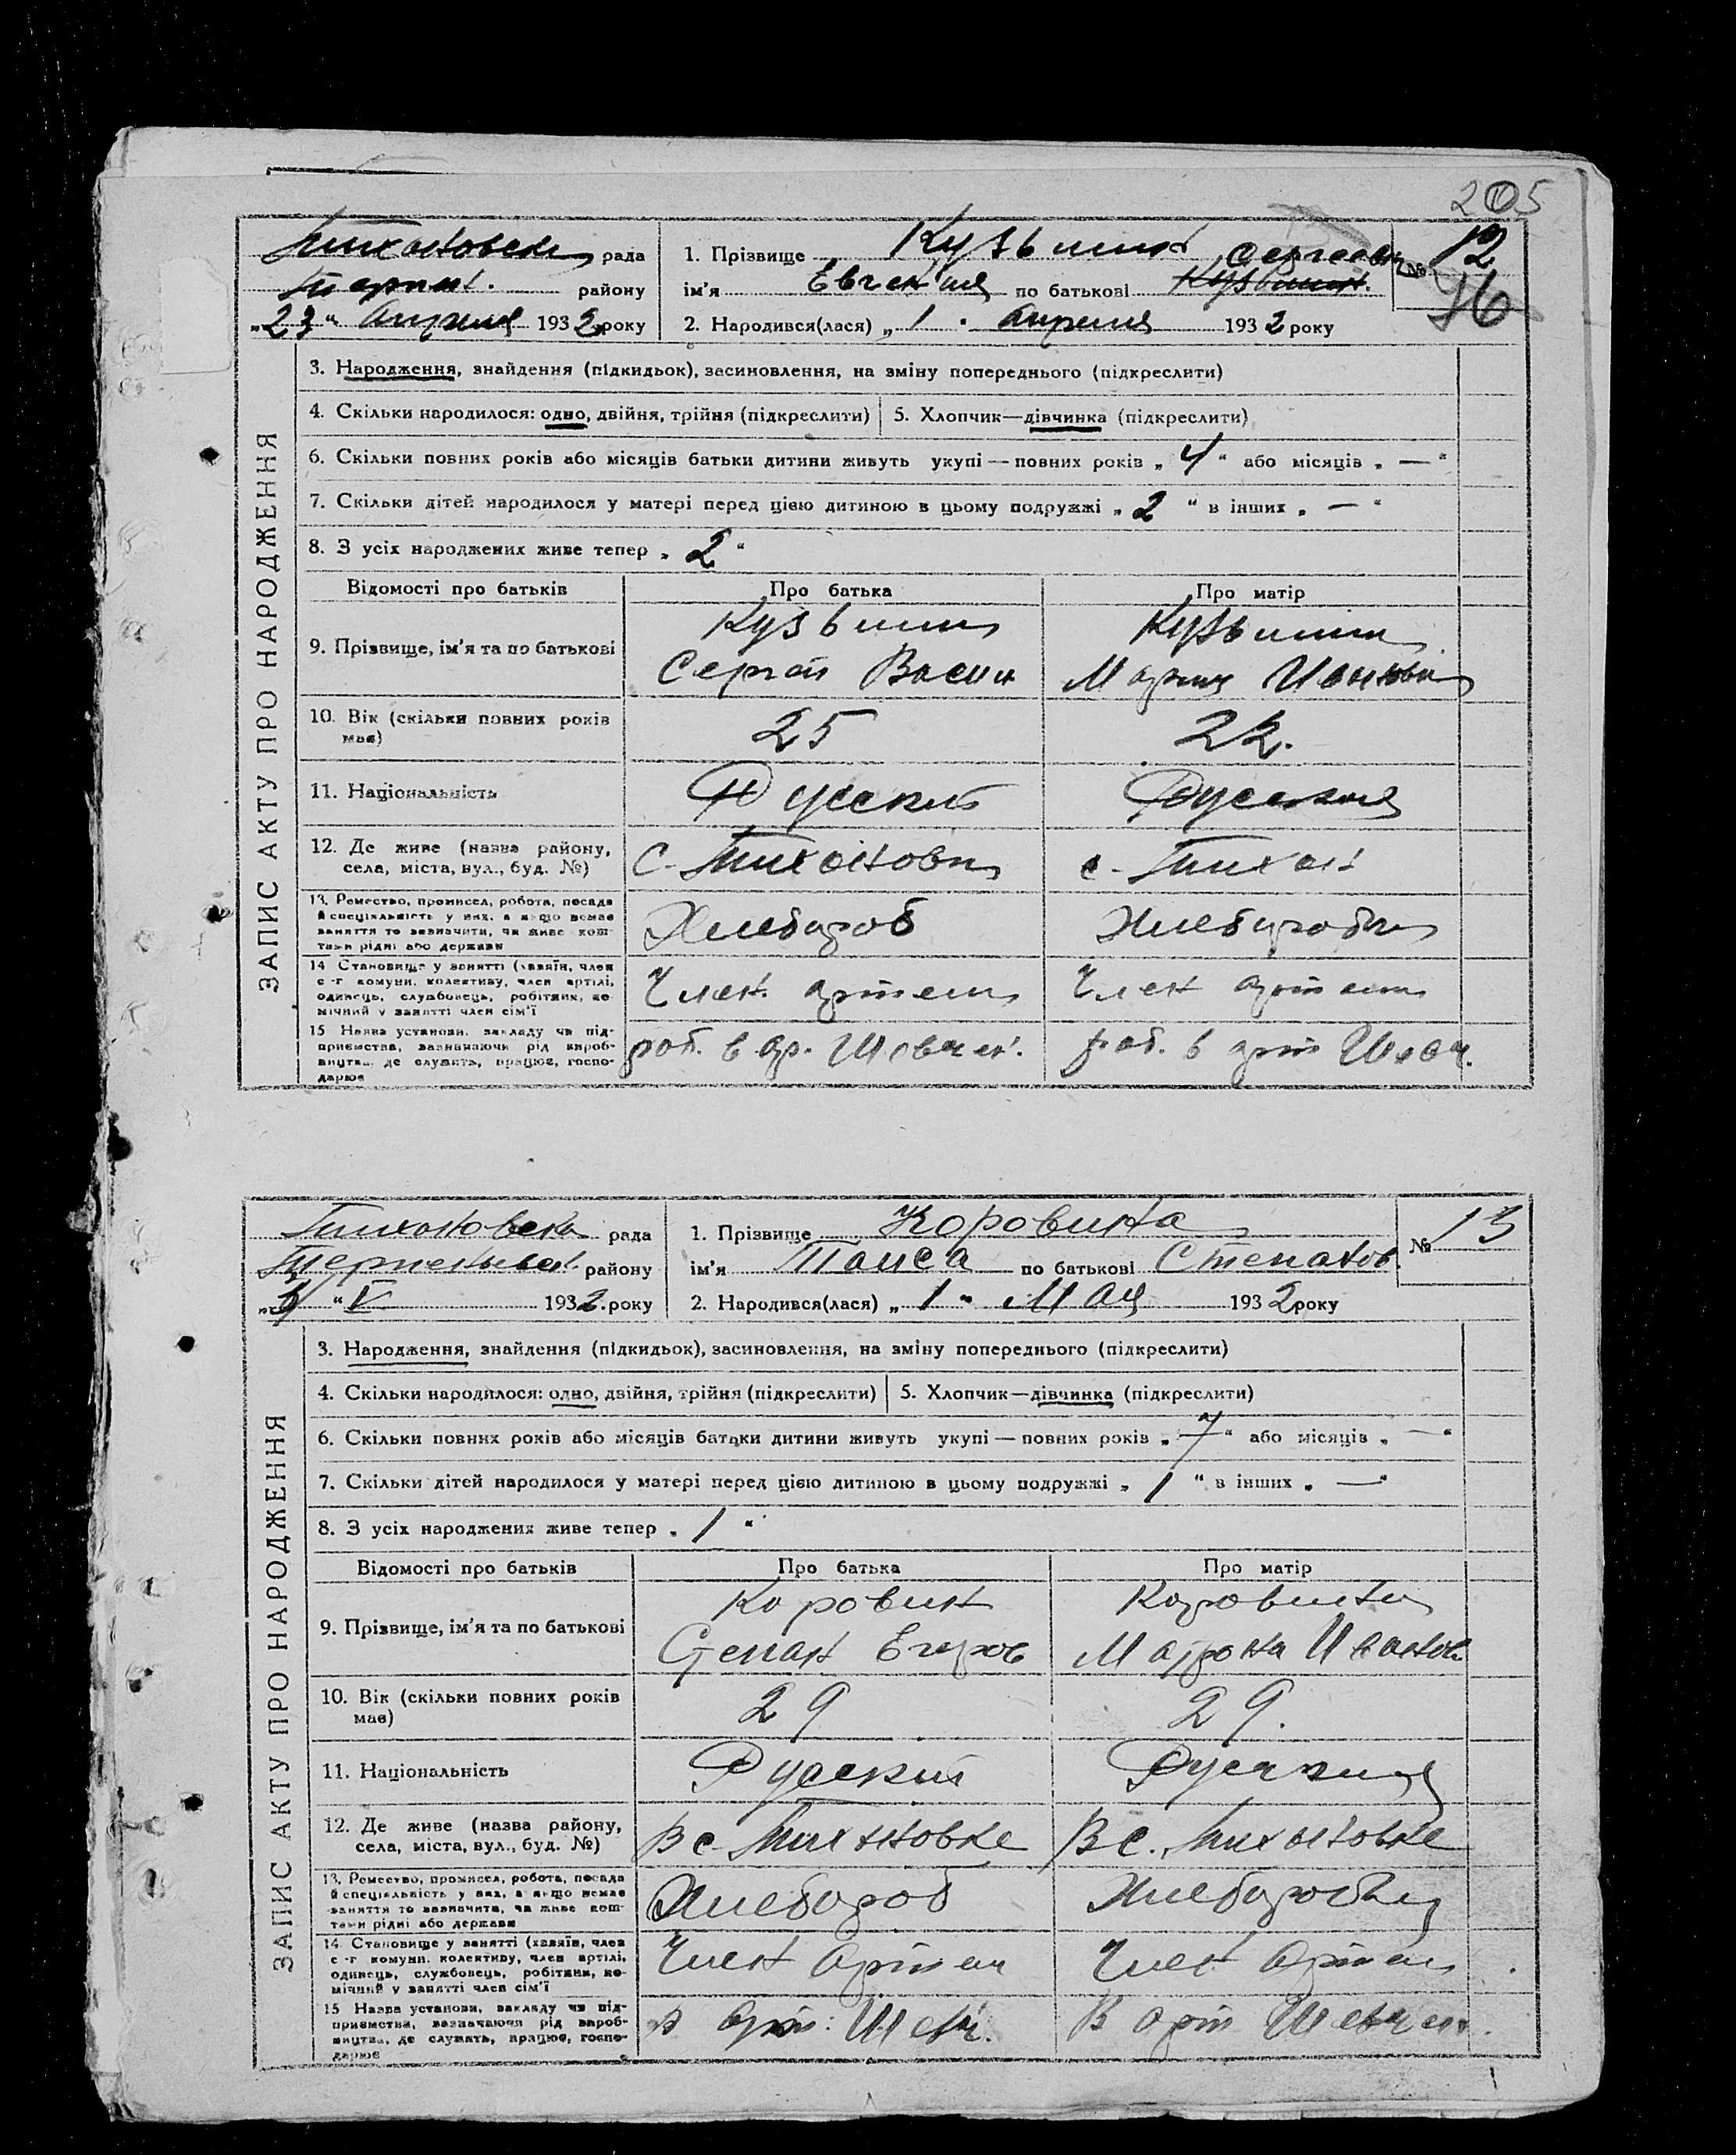 205
Тихоновск рада
Терпен. району
„23" Апреля 1932 року
1. Прізвище Кузьмина
ім'я Евгения по батькові Сергеевн Кузьмин.
2. Народився(лася) „1. Апреля 1932 року
№ 12
76
ЗАПИС АКТУ ПРО НАРОДЖЕННЯ
3. Народження, знайдення (підкидьок), засиновлення, на зміну попереднього (підкреслити)
4. Скільки народилося: одно, двійня, трійня (підкреслити) 5. Хлопчик—дівчинка (підкреслити)
6. Скільки повних років або місяців батьки дитини живуть укупі—повних років „4" або місяців „—"
7. Скільки дітей народилося у матері перед цією дитиною в цьому подружжі „2" в інших „—"
8. З усіх народжених живе тепер „2"
Відомості про батьків Про батька Про матір
9. Прізвище, ім'я та по батькові
Кузьмин Кузьмина
Сергей Васил Мария Иванови
10. Вік (скільки повних років має) 25 22.
11. Національність Русский Русская
12. Де живе (назва району, села, міста, вул., буд. №) с. Тихоновка с. Тихон
13. Ремество, промисел, робота, посада й спеціяльність у них, а якщо немає заняття то зазначити, чи живе коштами рідні або держави Хлебороб Хлеборобка
14 Становище у занятті (хазяїн, член с-г комуни, колективу, член артілі, одинець, службовець, робітник, помічний у занятті член сім'ї Член артели Член артели
15 Назва установи, закладу чи підприємства, зазначаючи рід виробництва, де служить, працює, господарює роб. в ар. Шевчен. роб. в арт Шевч.
Тихоновска рада
Терпеньевск. району
" V 1932. року
1. Прізвище Коровина
ім'я Таиса по батькові Степанов.
2. Народився(лася) „1" Мая 1932 року
№ 13
ЗАПИС АКТУ ПРО НАРОДЖЕННЯ
3. Народження, знайдення (підкидьок), засиновлення, на зміну попереднього (підкреслити)
4. Скільки народилося: одно, двійня, трійня (підкреслити) 5. Хлопчик—дівчинка (підкреслити)
6. Скільки повних років або місяців батьки дитини живуть укупі—повних років „7" або місяців „—"
7. Скільки дітей народилося у матері перед цією дитиною в цьому подружжі „1" в інших „—"
8. З усіх народжених живе тепер „1"
Відомості про батьків Про батька Про матір
9. Прізвище, ім'я та по батькові
Коровин Коровина
Степан Егоров Матрона Иванов
10. Вік (скільки повних років має) 29 29.
11. Національність Русский Русская
12. Де живе (назва району, села, міста, вул., буд. №) В с Тихоновке В с. Тихоновке
13. Ремество, промисел, робота, посада й спеціяльність у них, а якщо немає заняття то зазначити, чи живе коштами рідні або держави Хлебороб Хлеборобка
14. Становище у занятті (хазяїн, член с-г комуни, колективу, член артілі, одинець, службовець, робітник, помічний у занятті член сім'ї Член Артели Член Артели
15 Назва установи, закладу чи підприємства, зазначаючи рід виробництва, де служать, працює, господарює в арт. Шевч. В арт Шевчен.